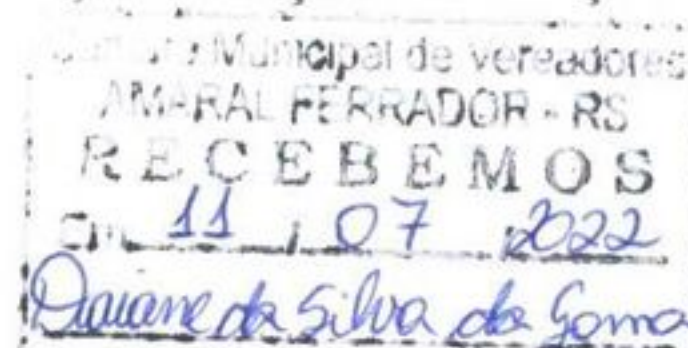 Municipal de Vereadores
AMARAL FERRADOR - RS
RECEBEMOS
Em 11 / 07 / 2022
Daiane da Silva da Gama